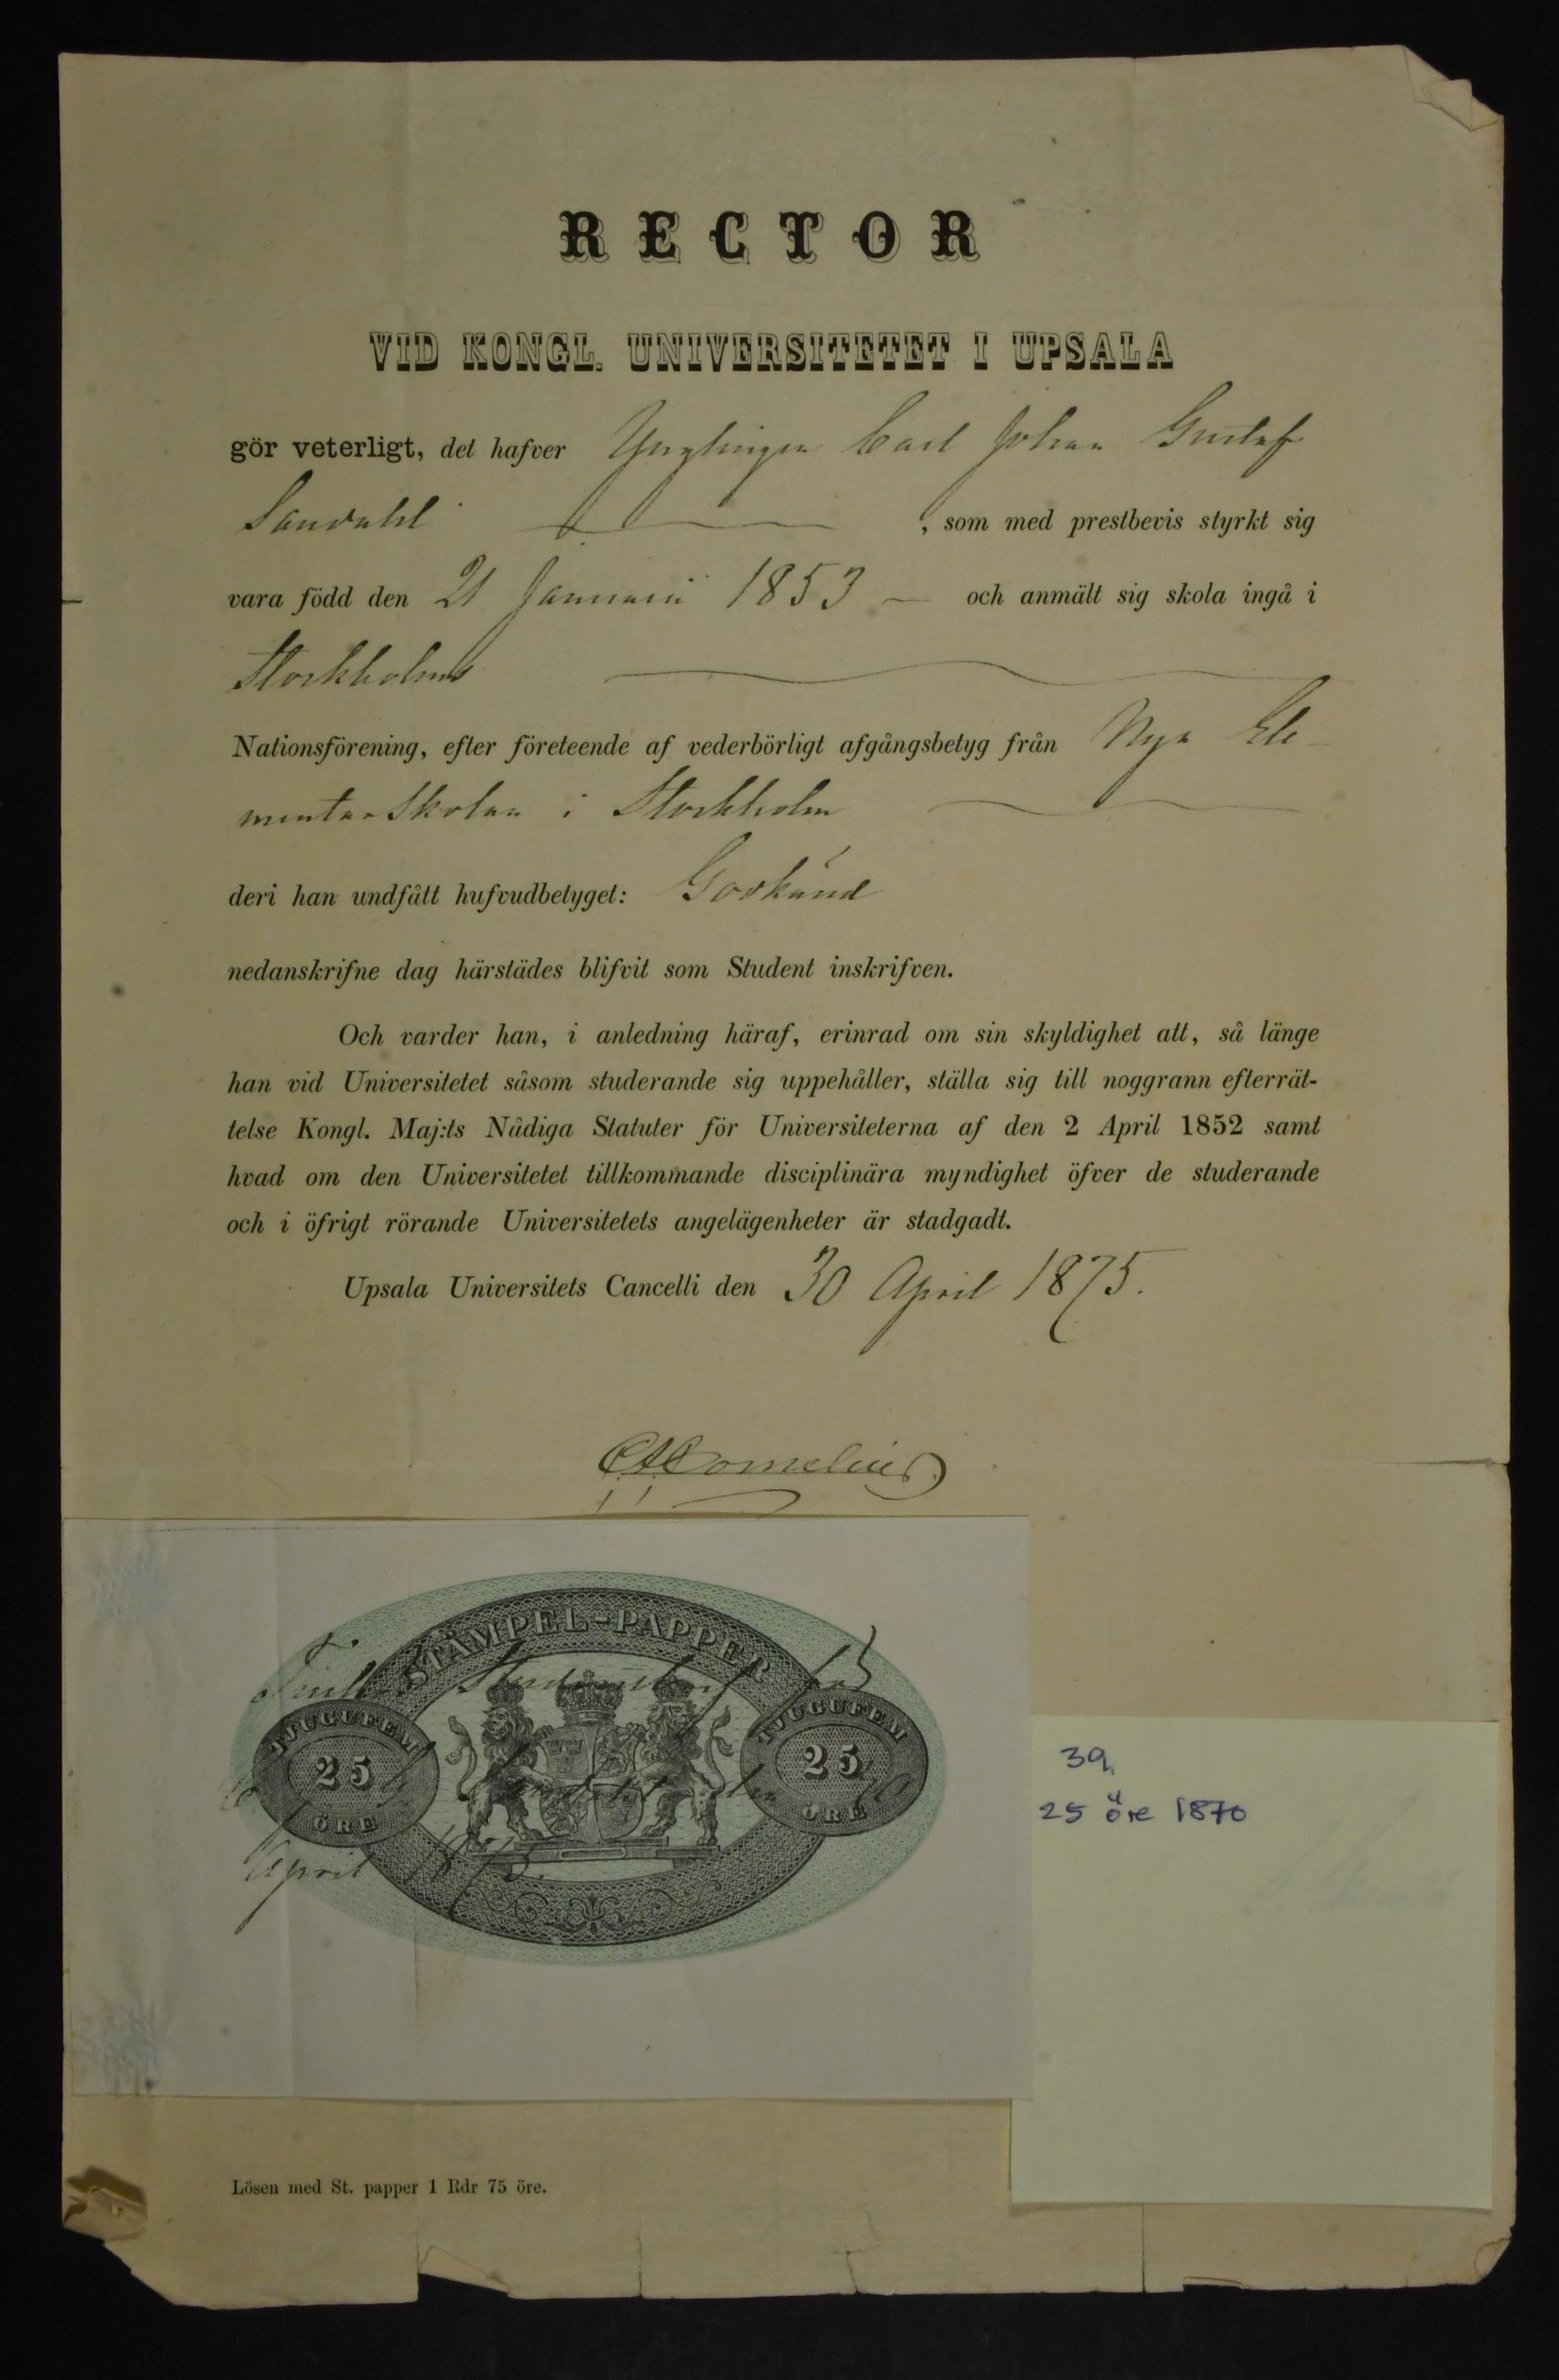 RECTOR
VID KONGL. UNIVERSITETET I UPSALA
gör veterligt, det hafver Ynglingen Carl Johan Gustaf
Sandahl, som med prestbevis styrkt sig
vara född den 21 Januarii 1853 – och anmält sig skola ingå i
Stockholms
Nationsförening, efter företeende af vederbörligt afgångsbetyg från Nya Ele-
mentar Skolan i Stockholm
deri han undfått hufvudbetyget: Godkänd
nedanskrifne dag härstädes blifvit som Student inskrifven.
Och varder han, i anledning häraf, erinrad om sin skyldighet att, så länge
han vid Universitetet såsom studerande sig uppehåller, ställa sig till noggrann efterrät-
telse Kongl. Maj:ts Nådiga Statuter för Universiteterna af den 2 April 1852 samt
hvad om den Universitetet tillkommande disciplinära myndighet öfver de studerande
och i öfrigt rörande Universitetets angelägenheter är stadgadt.
Upsala Universitets Cancelli den 30 April 1875.
CA Cornelius
STÄMPEL-PAPPER
TJUGUFEM
25
ÖRE
TJUGUFEM
25
ÖRE
April 1875.
39.
25 öre 1870
Lösen med St. papper 1 Rdr 75 öre.